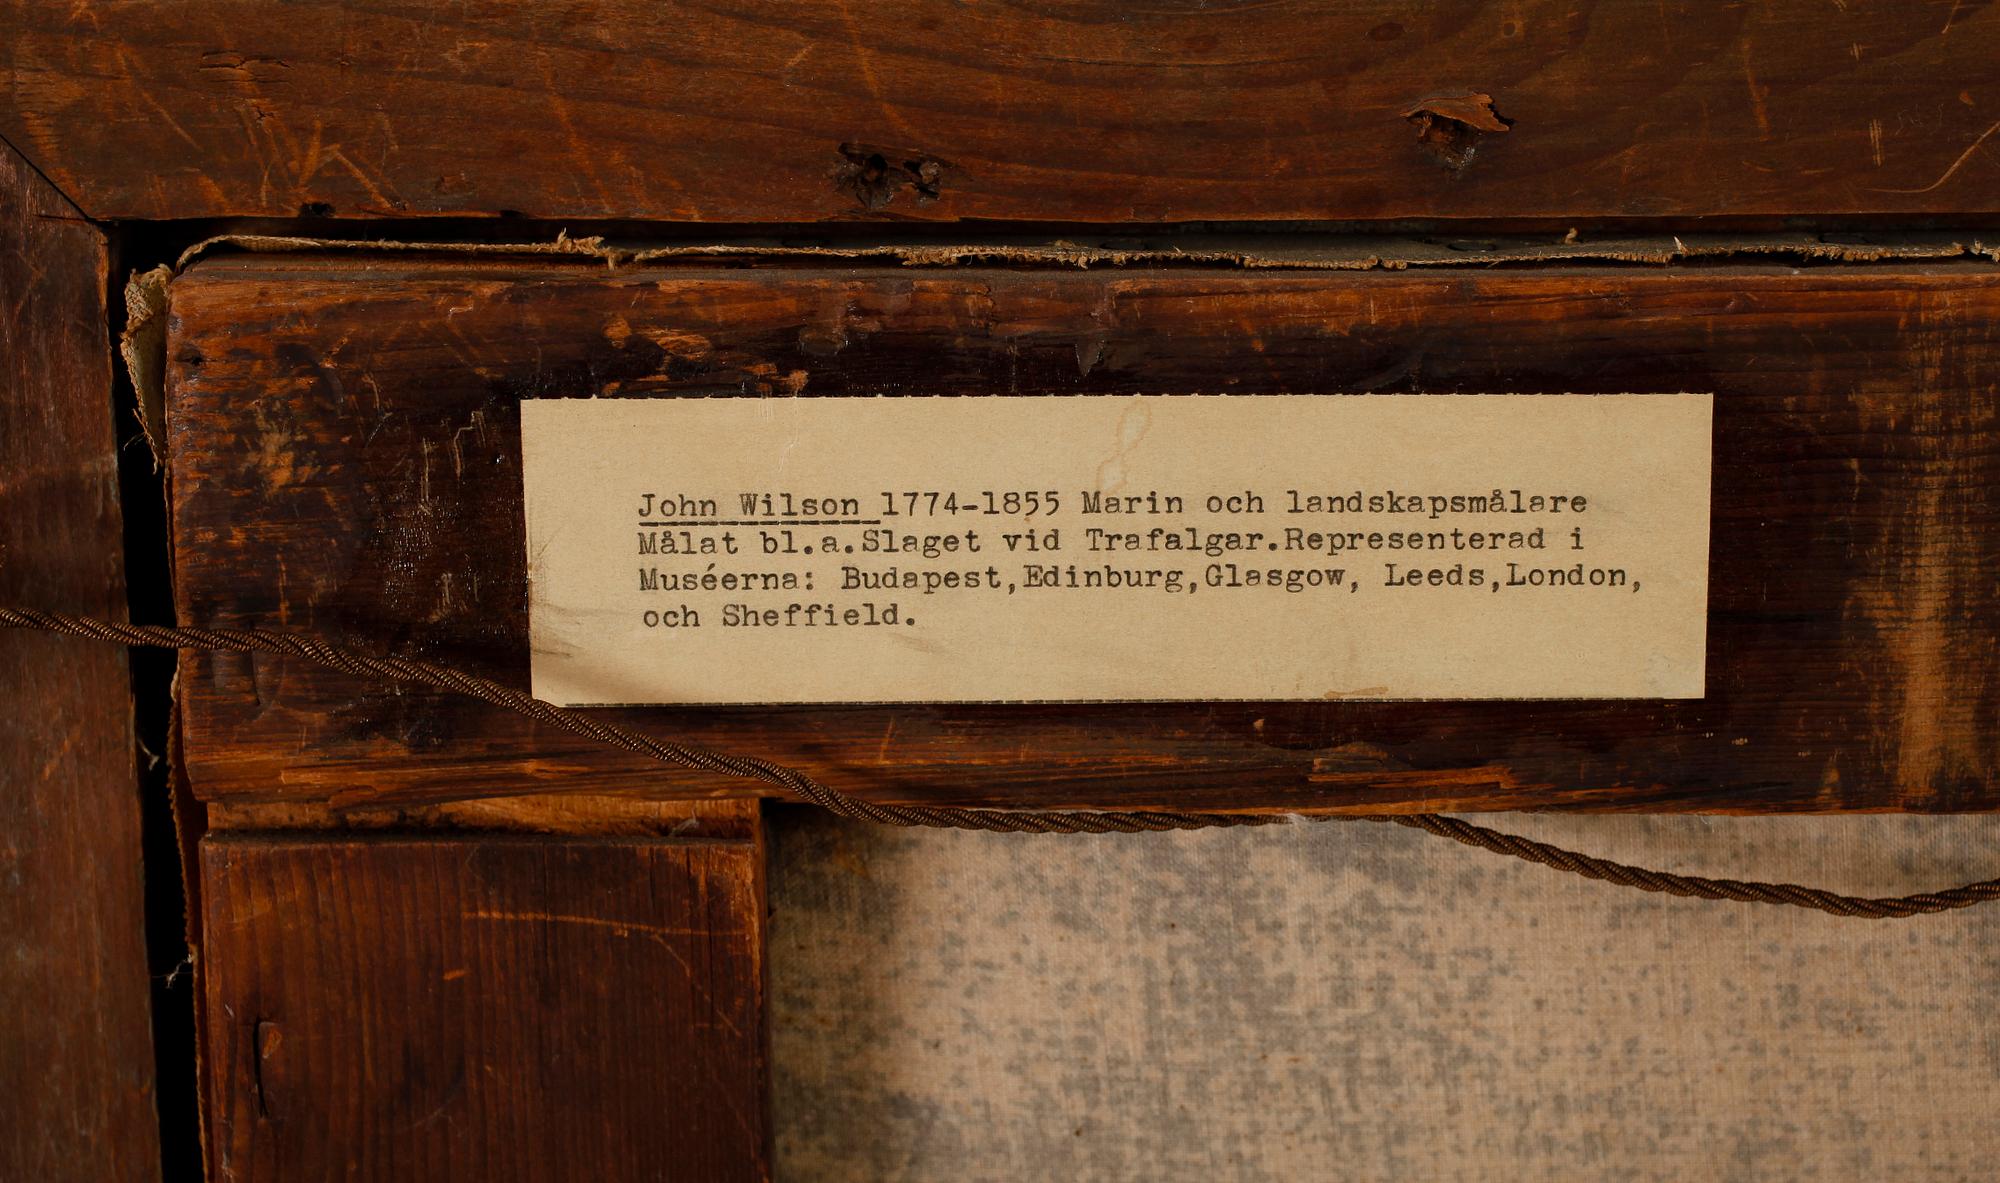 John Wilson 1774-1855 Marin och landskapsmålare
Målat bl.a.Slaget vid Trafalgar.Representerad i
Muséerna: Budapest,Edinburg,Glasgow, Leeds,London,
och Sheffield.